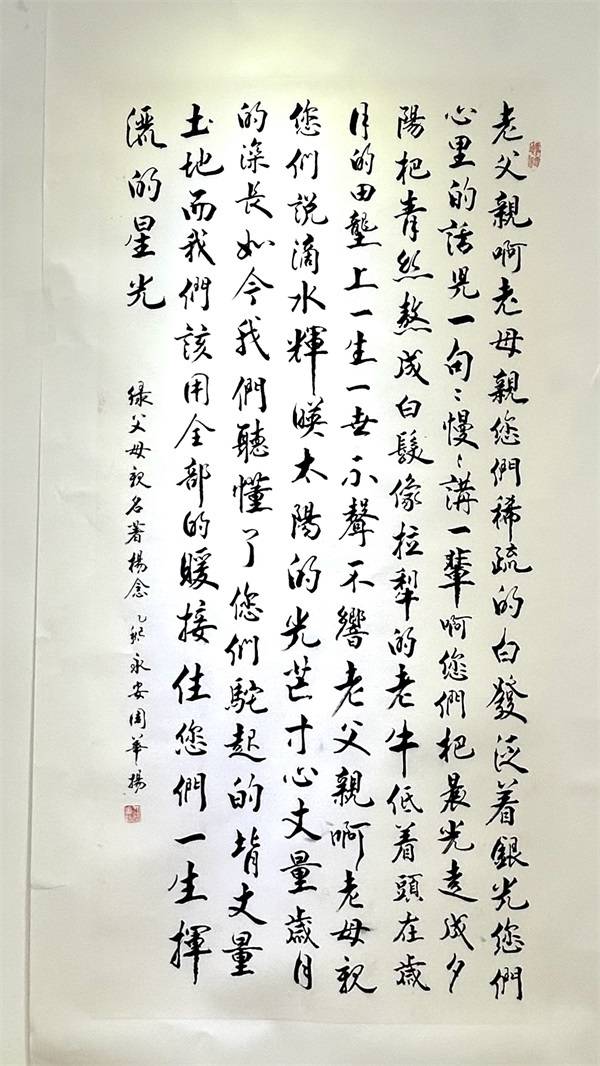 老父親啊老母親您們稀疏的白發泛着銀光您們
心里的話兒一句々慢々講一輩啊您們把晨光走成夕
陽把青丝熬成白髮像拉犁的老牛低着頭在歲
月的田壟上一生一世不聲不響老父親啊老母親
您們説滴水輝映太陽的光芒寸心丈量歲月
的深長如今我們聽懂了您們駝起的背丈量
土地而我們該用全部的暖接住您們一生揮
灑的星光
绿父母親名著楊念 乙巳 永安周華楊